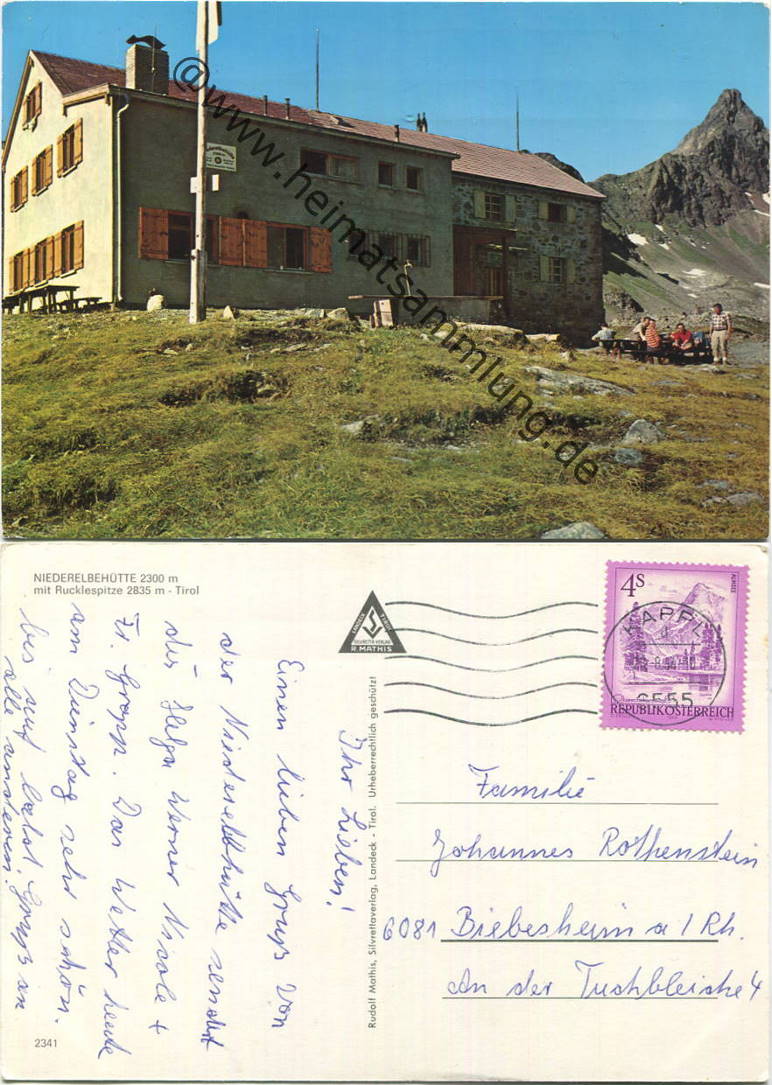 @www.heimatsammlung.de
NIEDERELBEHÜTTE 2300 m
mit Rucklespitze 2835 m - Tirol
LANDECK TIROL
SILVRETTA VERLAG
R. MATHIS
4S
ALMSEE
REPUBLIK ÖSTERREICH
KAPPL
6555
Ihr Lieben!
Einen lieben Gruß von
der Niederelbhütte sendet
dir Helga Werner Nicole +
Fr Gropp. Das Wetter heute
am Dienstag sehr schön.
bis auf bald. Gruß an
alle anderen.
2341
Rudolf Mathis, Silvrettaverlag, Landeck - Tirol. Urheberrechtlich geschützt
Familie
Johannes Rothenstein
6081 Biebesheim a / Rh.
An der Tuchbleiche 4